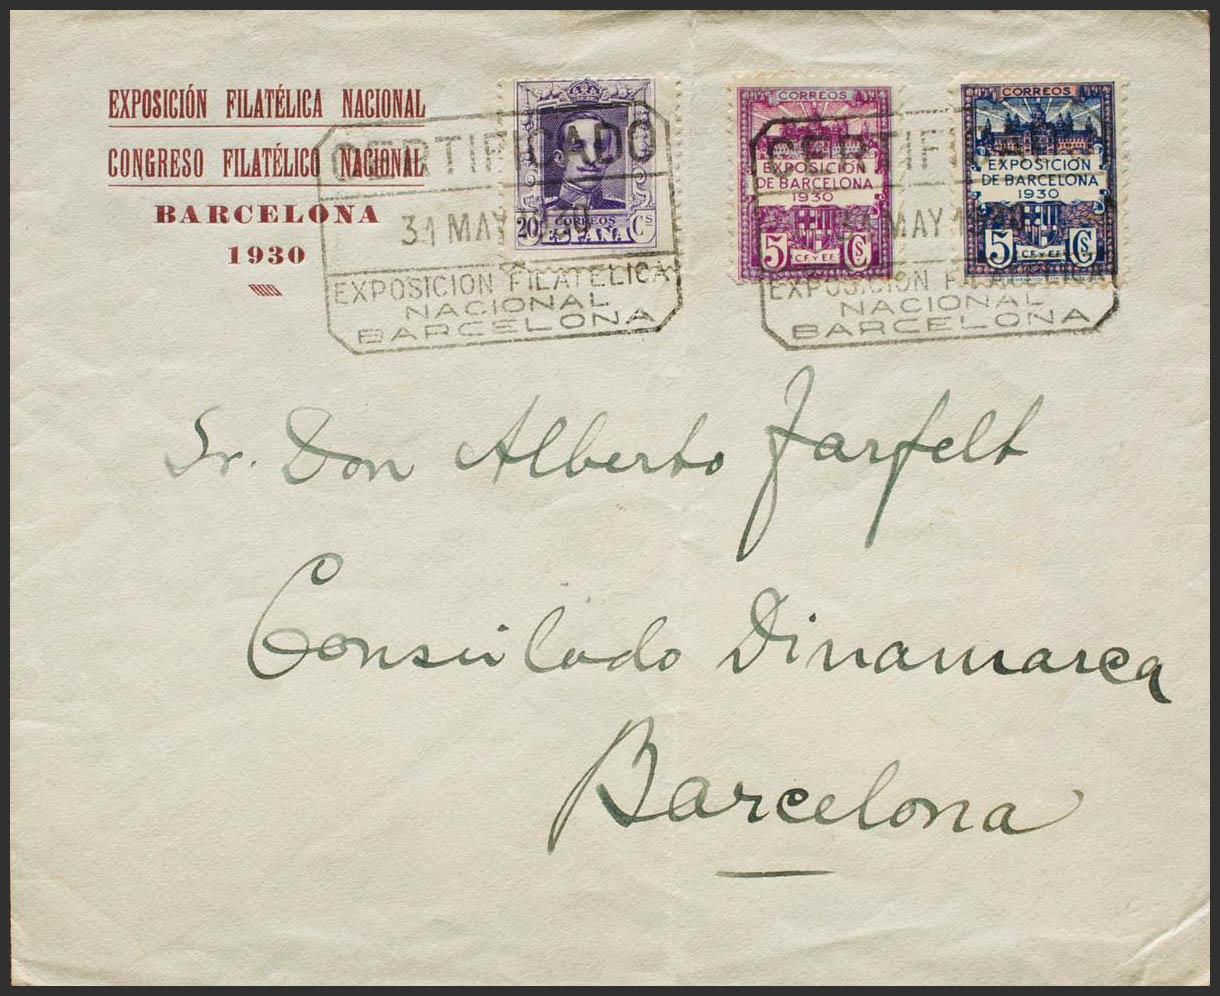 EXPOSICIÓN FILATÉLICA NACIONAL
CONGRESO FILATÉLICO NACIONAL
BARCELONA
1930
20 CORREOS Cs
ESPAÑA
CERTIFICADO
31 MAY 1930
EXPOSICION FILATELICA
NACIONAL
BARCELONA
CORREOS
EXPOSICIÓN
DE BARCELONA
1930
5 Cs
C.F.Y E.F.
CORREOS
EXPOSICIÓN
DE BARCELONA
1930
5 Cs
C.F.Y E.F.
CERTIFICADO
31 MAY 1930
EXPOSICION FILATELICA
NACIONAL
BARCELONA
Sr. Don Alberto Jarfelt
Consulado Dinamarca
Barcelona